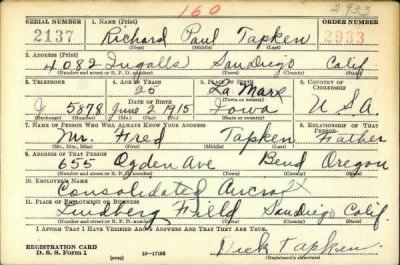 160
2933
SERIAL NUMBER 1. NAME (Print) ORDER NUMBER
2137 Richard Paul Tapken 2933
(First) (Middle) (Last)
2. ADDRESS (Print)
4082 Ingalls San Diego Calif
(Number and street or R. F. D. number) (Town) (County) (State)
3. TELEPHONE 4. AGE IN YEARS 5. PLACE OF BIRTH 6. COUNTRY OF CITIZENSHIP
25 La Mars
(Town or county)
J 5878 DATE OF BIRTH June 2 1915 Iowa U S A
(Exchange) (Number) (Mo.) (Day) (Yr.) (State or country)
7. NAME OF PERSON WHO WILL ALWAYS KNOW YOUR ADDRESS 8. RELATIONSHIP OF THAT PERSON
Mr. Fred Tapken Father
(Mr., Mrs., Miss) (First) (Middle) (Last)
9. ADDRESS OF THAT PERSON
655 Ogden Ave Bend Oregon
(Number and street or R. F. D. number) (Town) (County) (State)
10. EMPLOYER'S NAME
Consolidated Aircraft
11. PLACE OF EMPLOYMENT OR BUSINESS
Lindberg Field San Diego Calif.
(Number and street or R. F. D. number) (Town) (County) (State)
I AFFIRM THAT I HAVE VERIFIED ABOVE ANSWERS AND THAT THEY ARE TRUE.
REGISTRATION CARD
D. S. S. Form 1 (over) 16—17105 Dick Tapken
(Registrant's signature)